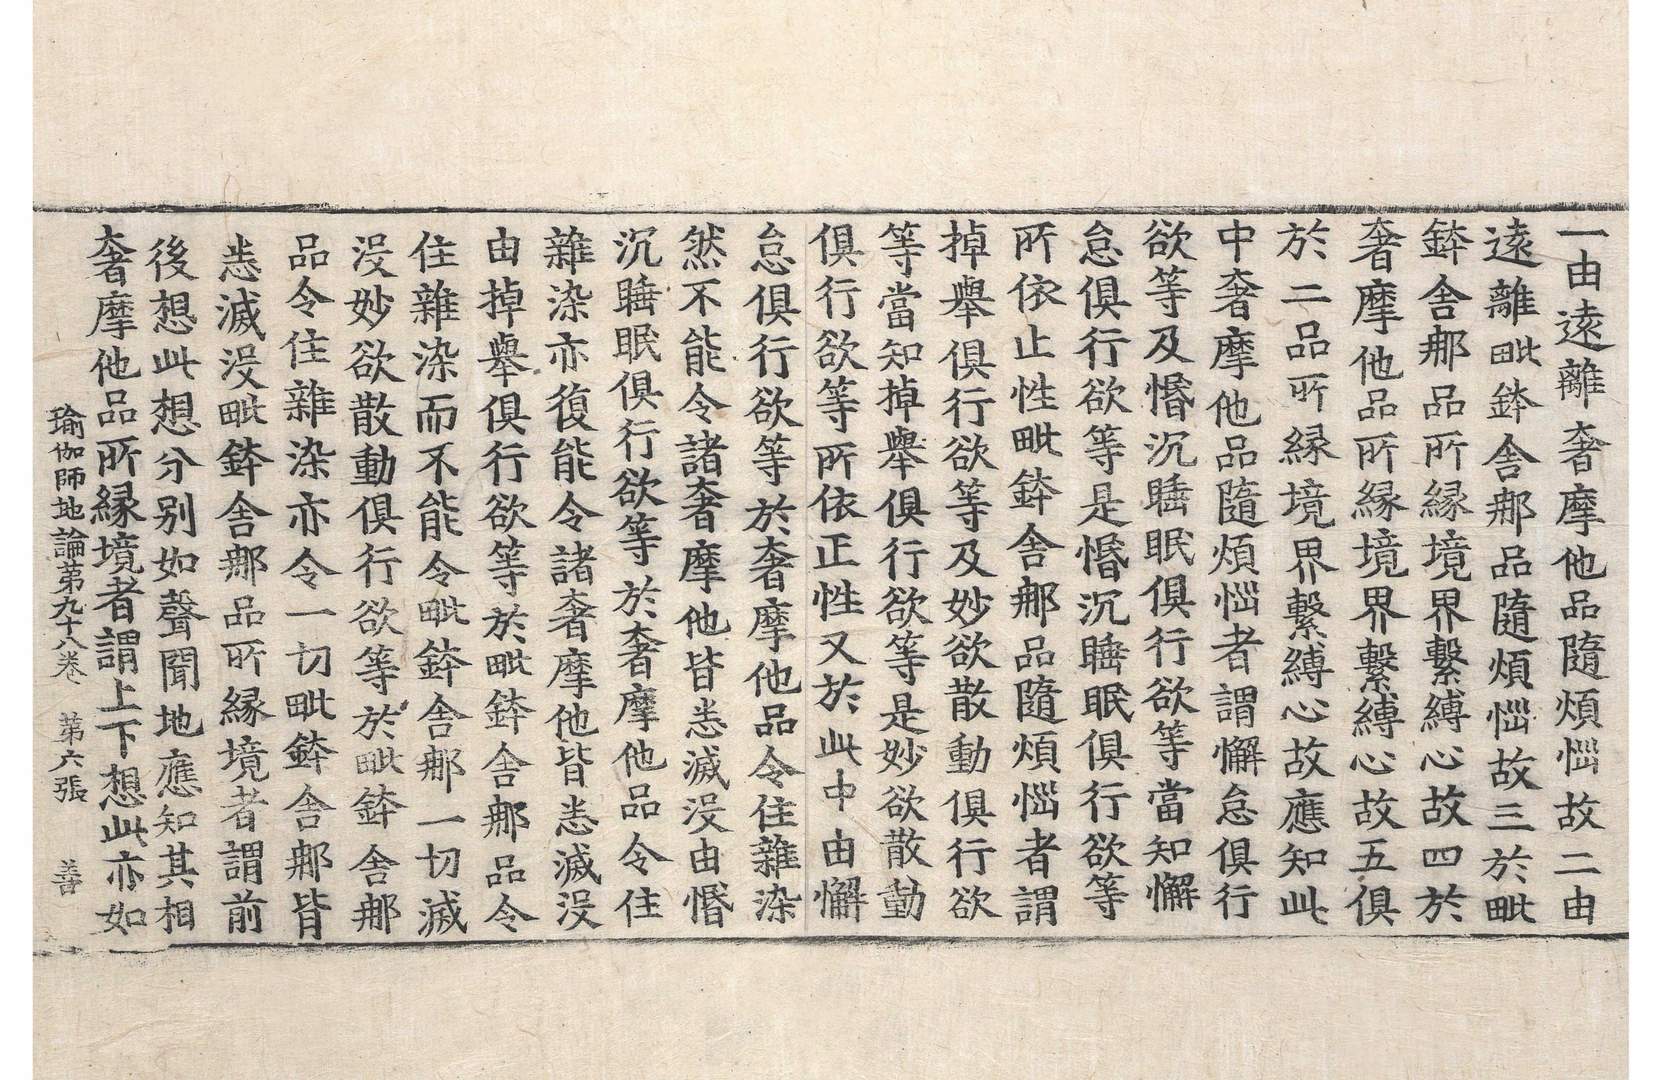 一由遠離奢摩他品隨煩惱故二由
遠離毗鉢舍那品隨煩惱故三於毗
鉢舍那品所緣境界繫縛心故四於
奢摩他品所緣境界繫縛心故五俱
於二品所緣境界繫縛心故應知此
中奢摩他品隨煩惱者謂懈怠俱行
欲等及惛沉睡眠俱行欲等當知懈
怠俱行欲等是惛沉睡眠俱行欲等
所依止性毗鉢舍那品隨煩惱者謂
掉舉俱行欲等及妙欲散動俱行欲
等當知掉舉俱行欲等是妙欲散動
俱行欲等所依正性又於此中由懈
怠俱行欲等於奢摩他品令住雜染
然不能令諸奢摩他皆悉滅沒由惛
沉睡眠俱行欲等於奢摩他品令住
雜染亦復能令諸奢摩他皆悉滅沒
由掉舉俱行欲等於毗鉢舍那品令
住雜染而不能令毗鉢舍那一切滅
沒妙欲散動俱行欲等於毗鉢舍那
品令住雜染亦令一切毗鉢舍那皆
悉滅沒毗鉢舍那品所緣境者謂前
後想此想分別如聲聞地應知其相
奢摩他品所緣境者謂上下想此亦如
瑜伽師地論第九十八卷 第六張 善